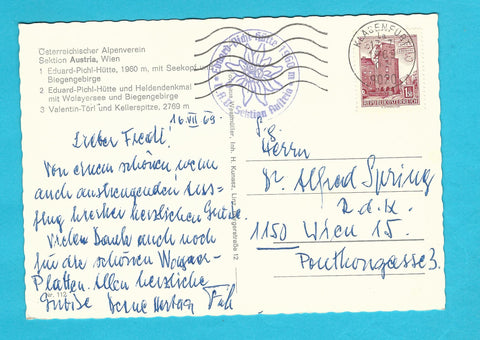 Österreichischer Alpenverein
Sektion Austria, Wien
1 Eduard-Pichl-Hütte, 1960 m, mit Seekopf und
Biegengebirge
2 Eduard-Pichl-Hütte und Heldendenkmal
mit Wolayersee und Biegengebirge
3 Valentin-Törl und Kellerspitze, 2769 m
Eduard-Pichl-Hütte 1960 m
Sektion Austria
KLAGENFURT
REPUBLIK ÖSTERREICH
16.VII 69.
Lieber Friedl!
Von einem schönen wenn
auch anstrengenden Aus-
flug herzlichen Grüße
Vielen Dank auch noch
für die schönen
Platten. Allen herzliche
Grüße
Nr. 112
Inh. H. Kunasz, Linz
12
Herrn
Dr. Alfred Spring
1150 Wien 15.
Ponthongasse 3.